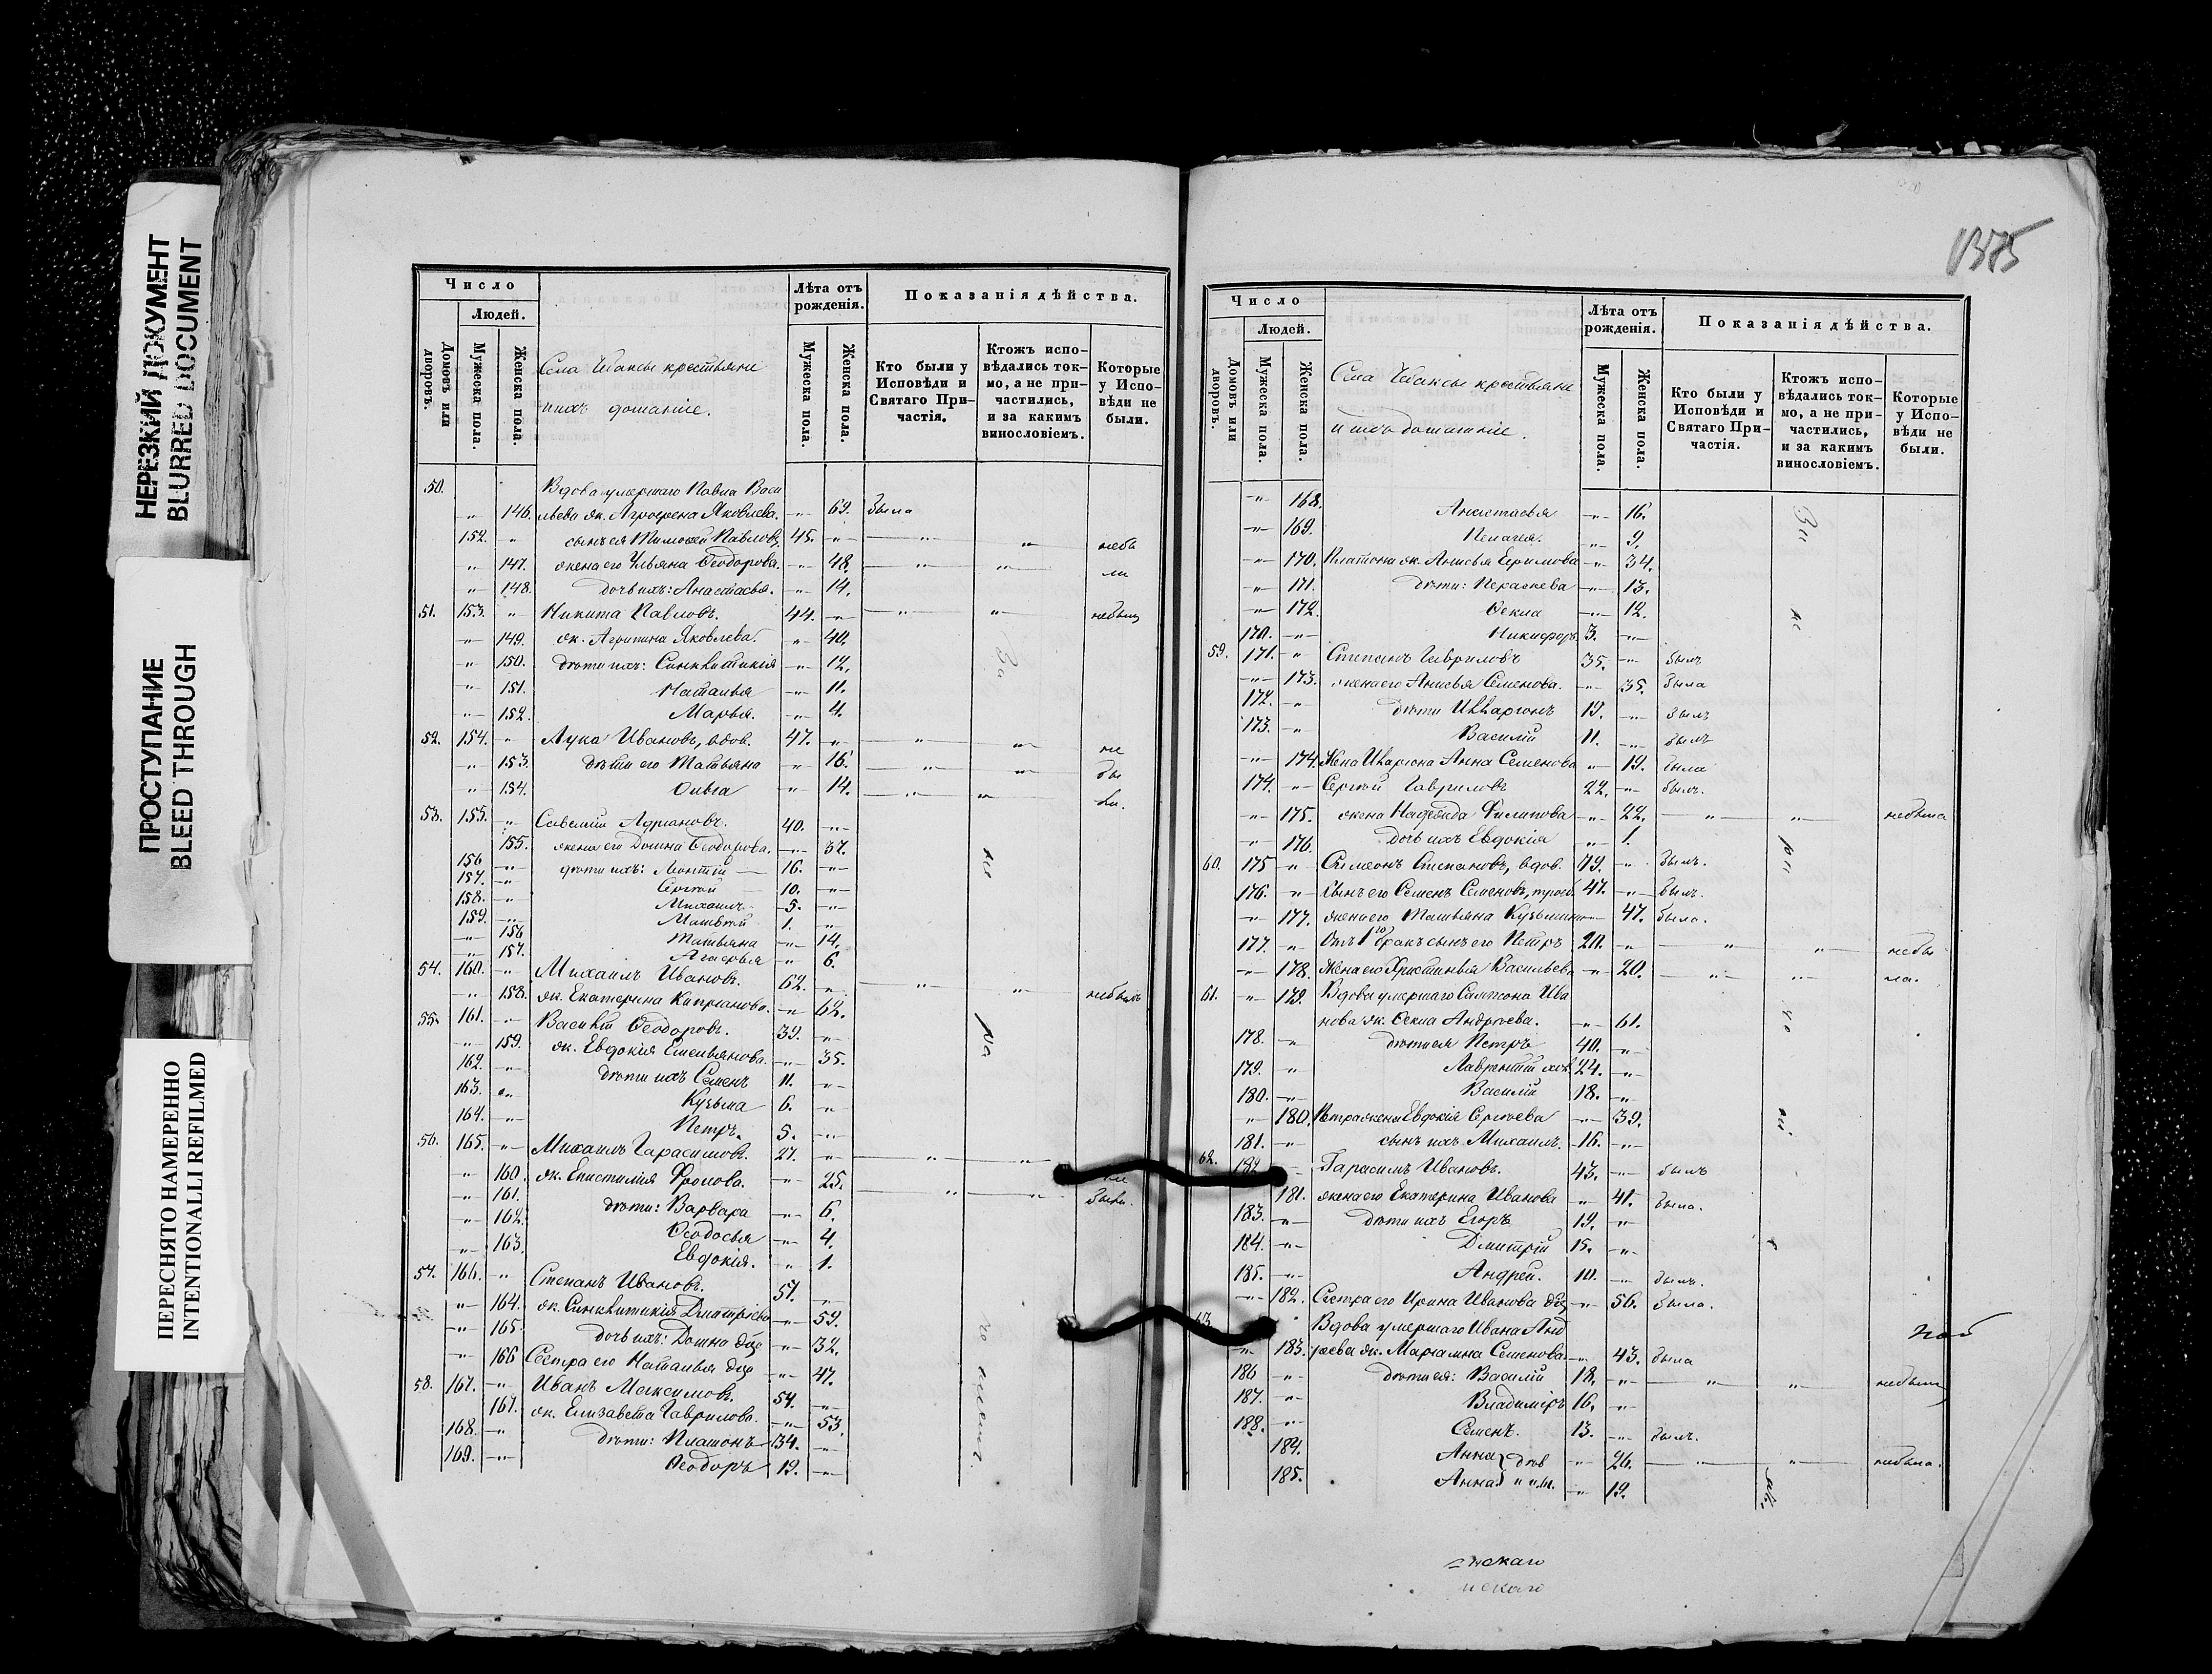 НЕРЕЗКИЙ ДОКУМЕНТ
BLURRED DOCUMENT
ПРОСТУПАНИЕ
BLEED THROUGH
ПЕРЕСНЯТО НАМЕРЕННО
INTENTIONALLI REFILMED
Число
Людей.
Домовъ или дворовъ.
Мужеска пола.
Женска пола.
Села крестьяне
и ихъ домашніе.
Лѣта отъ рожденія.
Мужеска пола.
Женска пола.
Показанія дѣйства.
Кто были у Исповѣди и Святаго При-частія.
Ктожъ испо-вѣдались ток-мо, а не при-частились, и за какимъ винословіемъ.
Которые у Испо-вѣди не были.
50. Вдова умершаго Павла Васи
-„- 146. льева ж. Агрофена Яковлева. -„- 69. была
152. „ сынъ ея Тимофей Павловъ 45. -„- „ „ небы
„ 147. жена его Ульяна Ѳеодорова. -„- 48. „ „ ли
„ 148. дочь ихъ: Анастасья. -„- 14.
51. 153. „ Никита Павловъ. 44. -„- „ „ небыли
-„- 149. ж. Агрипина Яковлева. „ 40.
-„- 150. дѣти ихъ: Синклитикія -„- 12. За
-„- 151. Наталья -„- 11.
-„- 152. Марья. -„- 4.
52. 154. „ Лука Ивановъ, вдов. 47. -„- „ „ не
-„- 153. дѣти его Татьяна „ 16. „ „ бы
-„- 154. Ольга -„- 14. „ „ ли.
53. 155. -„- Савелій Адріановъ. 40. -„-
155. жена его Домна Ѳеодорова. -„- 37.
156 -„- дѣти ихъ: Леонтій — 16. -„-
157. -„- Сергѣй 10. -„-
158. -„- Михаилъ 5. -„-
159. -„- Матвѣй 1. -„-
-„- 156 Татьяна -„- 14.
-„- 157. Агафья -„- 6.
54. 160. -„- Михаилъ Ивановъ. 62. „ „ „ небылъ
-„- 158. ж. Екатерина Кипріанова. -„- 62.
55. 161. -„- Василій Ѳеодоровъ. 39. -„-
-„- 159. ж. Евдокія Емельянова. -„- 35.
162. -„- дѣти ихъ Семенъ 11. -„-
163. -„- Кузьма 6. -„-
164. -„- Петръ. 5. -„-
56. 165. -„- Михаилъ Гарасимовъ. 27. -„- „ „
-„- 160. ж. Епистимія Фролова. -„- 25. „ „ были.
-„- 161. дѣти: Варвара -„- 6.
-„- 162. Ѳеодосья -„- 4.
-„- 163. Евдокія. -„- 1.
57. 166. -„- Степанъ Ивановъ. 57. -„-
-„- 164. ж. Синклитикія Дмитріева -„- 59.
-„- 165. дочь ихъ: Домна -„- 32.
-„- 166 Сестра его Наталья -„- 47.
58. 167. -„- Иванъ Максимовъ. 54. -„-
167. ж. Елизавета Гаврилова. -„- 53.
168. -„- дѣти: Платонъ 34. -„-
169. -„- Ѳеодоръ 19. -„-
1375
Число
Людей.
Домовъ или дворовъ.
Мужеска пола.
Женска пола.
Села крестьяне
и ихъ домашніе.
Лѣта отъ рожденія.
Мужеска пола.
Женска пола.
Показанія дѣйства.
Кто были у Исповѣди и Святаго При-частія.
Ктожъ испо-вѣдались ток-мо, а не при-частились, и за какимъ винословіемъ.
Которые у Испо-вѣди не были.
-„- 168. Анастасья -„- 16. За
-„- 169. Пелагея. -„- 9.
-„- 170. Платона ж. Анисья Ефимова -„- 34.
-„- 171. дѣти: -„- 13.
-„- 172. Ѳекла -„- 12.
170. -„- Никифоръ 3. -„-
59. 171. -„- Степанъ Гавриловъ 35. -„- былъ
-„- 173. жена его Анисья Семенова. -„- 35. была
172. -„- дѣти Илларіонъ 19. -„- былъ
173. -„- Василій 11. -„- былъ
-„- 174. Жена Иларіона Анна Семенова -„- 19. была
174. -„- Сергѣй Гавриловъ 22. -„- былъ.
-„- 175. жена Надежда Филипова -„- 22. „ „ небыла
-„- 176. дочь ихъ Евдокія „ 1.
60. 175 -„- Симеонъ Степановъ, вдов. 79. „ былъ.
176. -„- Сынъ его Семенъ Семеновъ, 47. -„- былъ.
-„- 177. жена его Татьяна Кузьмина -„- 47. была.
177. -„- Отъ 1го брака сынъ его Петръ 20. -„- „ „ небы
-„- 178. Жена его Христинья Васильева -„- 20. „ „ ла.
61. -„- 179. Вдова умершаго Сампсона Ива
нова ж. Ѳекла Андреева. -„- 61.
178. -„- дѣти ея Петръ 40. -„-
179. -„- Лаврентій 24. -„-
180. -„- Василій 18. -„-
-„- 180. Петра жена Евдокія Сергѣева -„- 39.
181. -„- сынъ ихъ Михаилъ. 16. -„-
62. 182. -„- Гарасимъ Ивановъ. 43. -„- былъ
181. жена его Екатерина Иванова „ 41. была.
183. -„- дѣти ихъ Егоръ 19. -„-
184. -„- Дмитрій 15. -„-
185. -„- Андрей. 10. -„- былъ.
-„- 182. Сестра его Ирина Иванова -„- 56. была.
63. Вдова умершаго Ивана Анд
-„- 183. реева ж. Маріамна Семенова. -„- 43. была
186 -„- дѣти ея: Василій 18. -„- „ „ небылъ
187. -„- Владиміръ 16. -„-
188. -„- Семенъ. 13. -„- былъ.
184. Анна -„- 26. „ „ небыла.
185. Анна -„- 19.